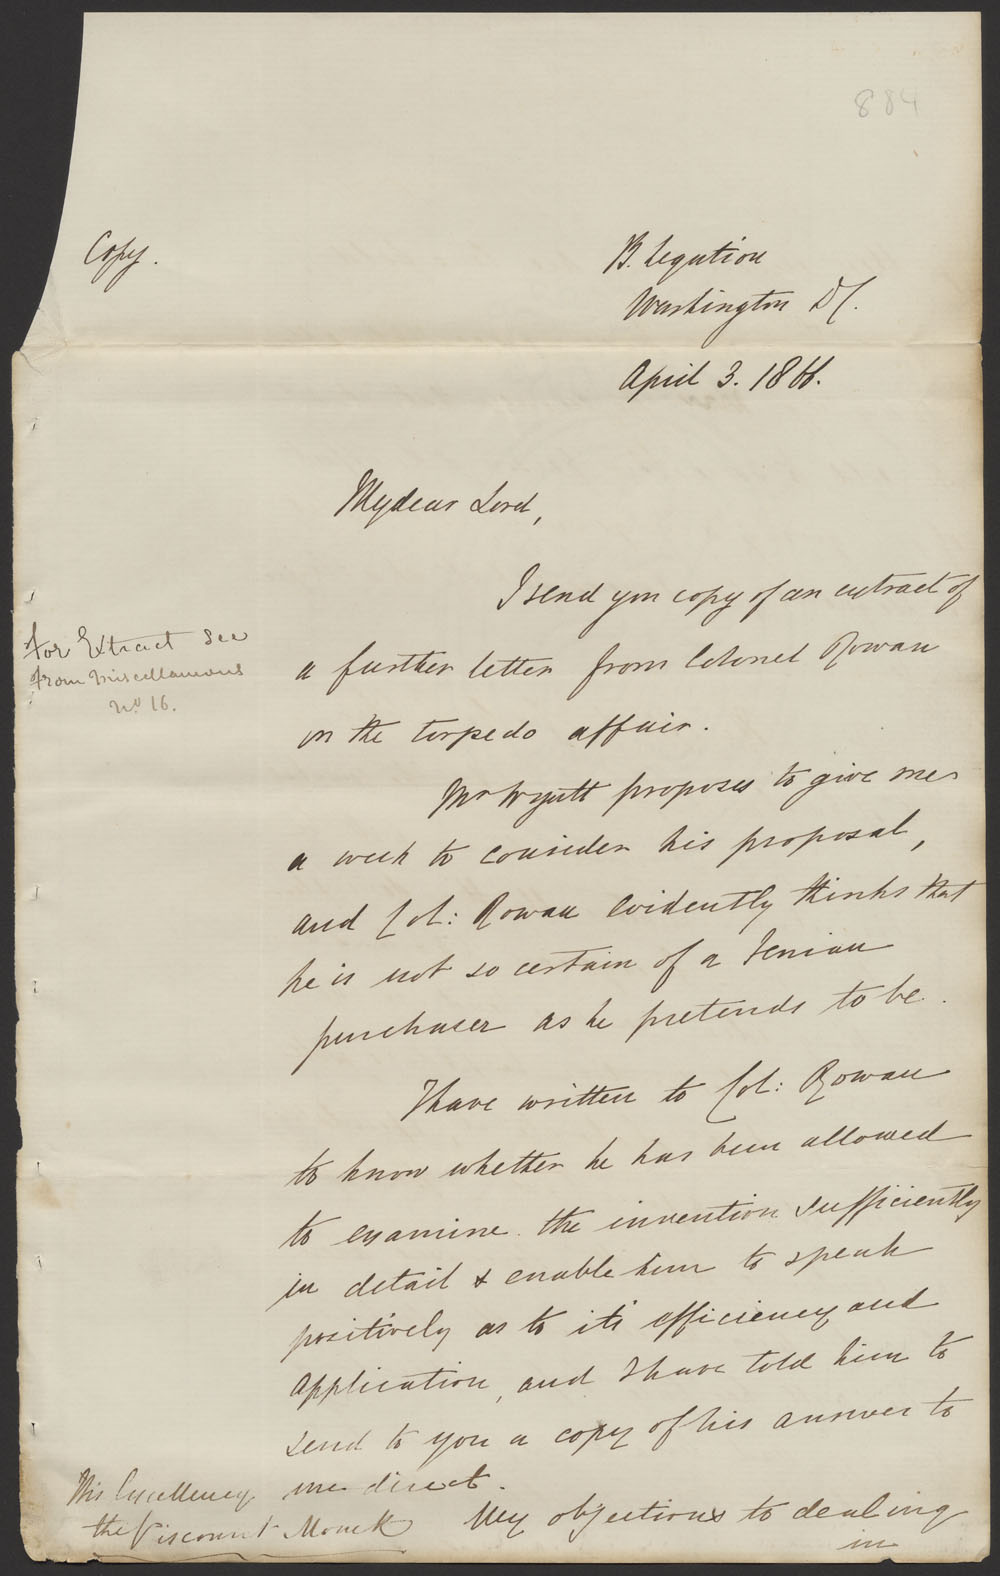 884
Copy.
B. Legation
Washington DC.
April 3. 1866.
My dear Lord,
I send you copy of an extract of
a further letter from Colonel Rowan
on the torpedo affair.
For Extract see
From Miscellaneous
No. 16.
Mr Wyatt proposes to give me
a week to consider his proposal,
and Col: Rowan evidently thinks that
he is not so certain of a Fenian
purchaser as he pretends to be.
I have written to Col: Rowan
to know whether he has been allowed
to examine the invention sufficiently
in detail to enable him to speak
positively as to it's efficiency and
application, and I have told him to
send to you a copy of his answer to
me direct.
My objections to dealing
in
His Excellency
the Viscount Monck